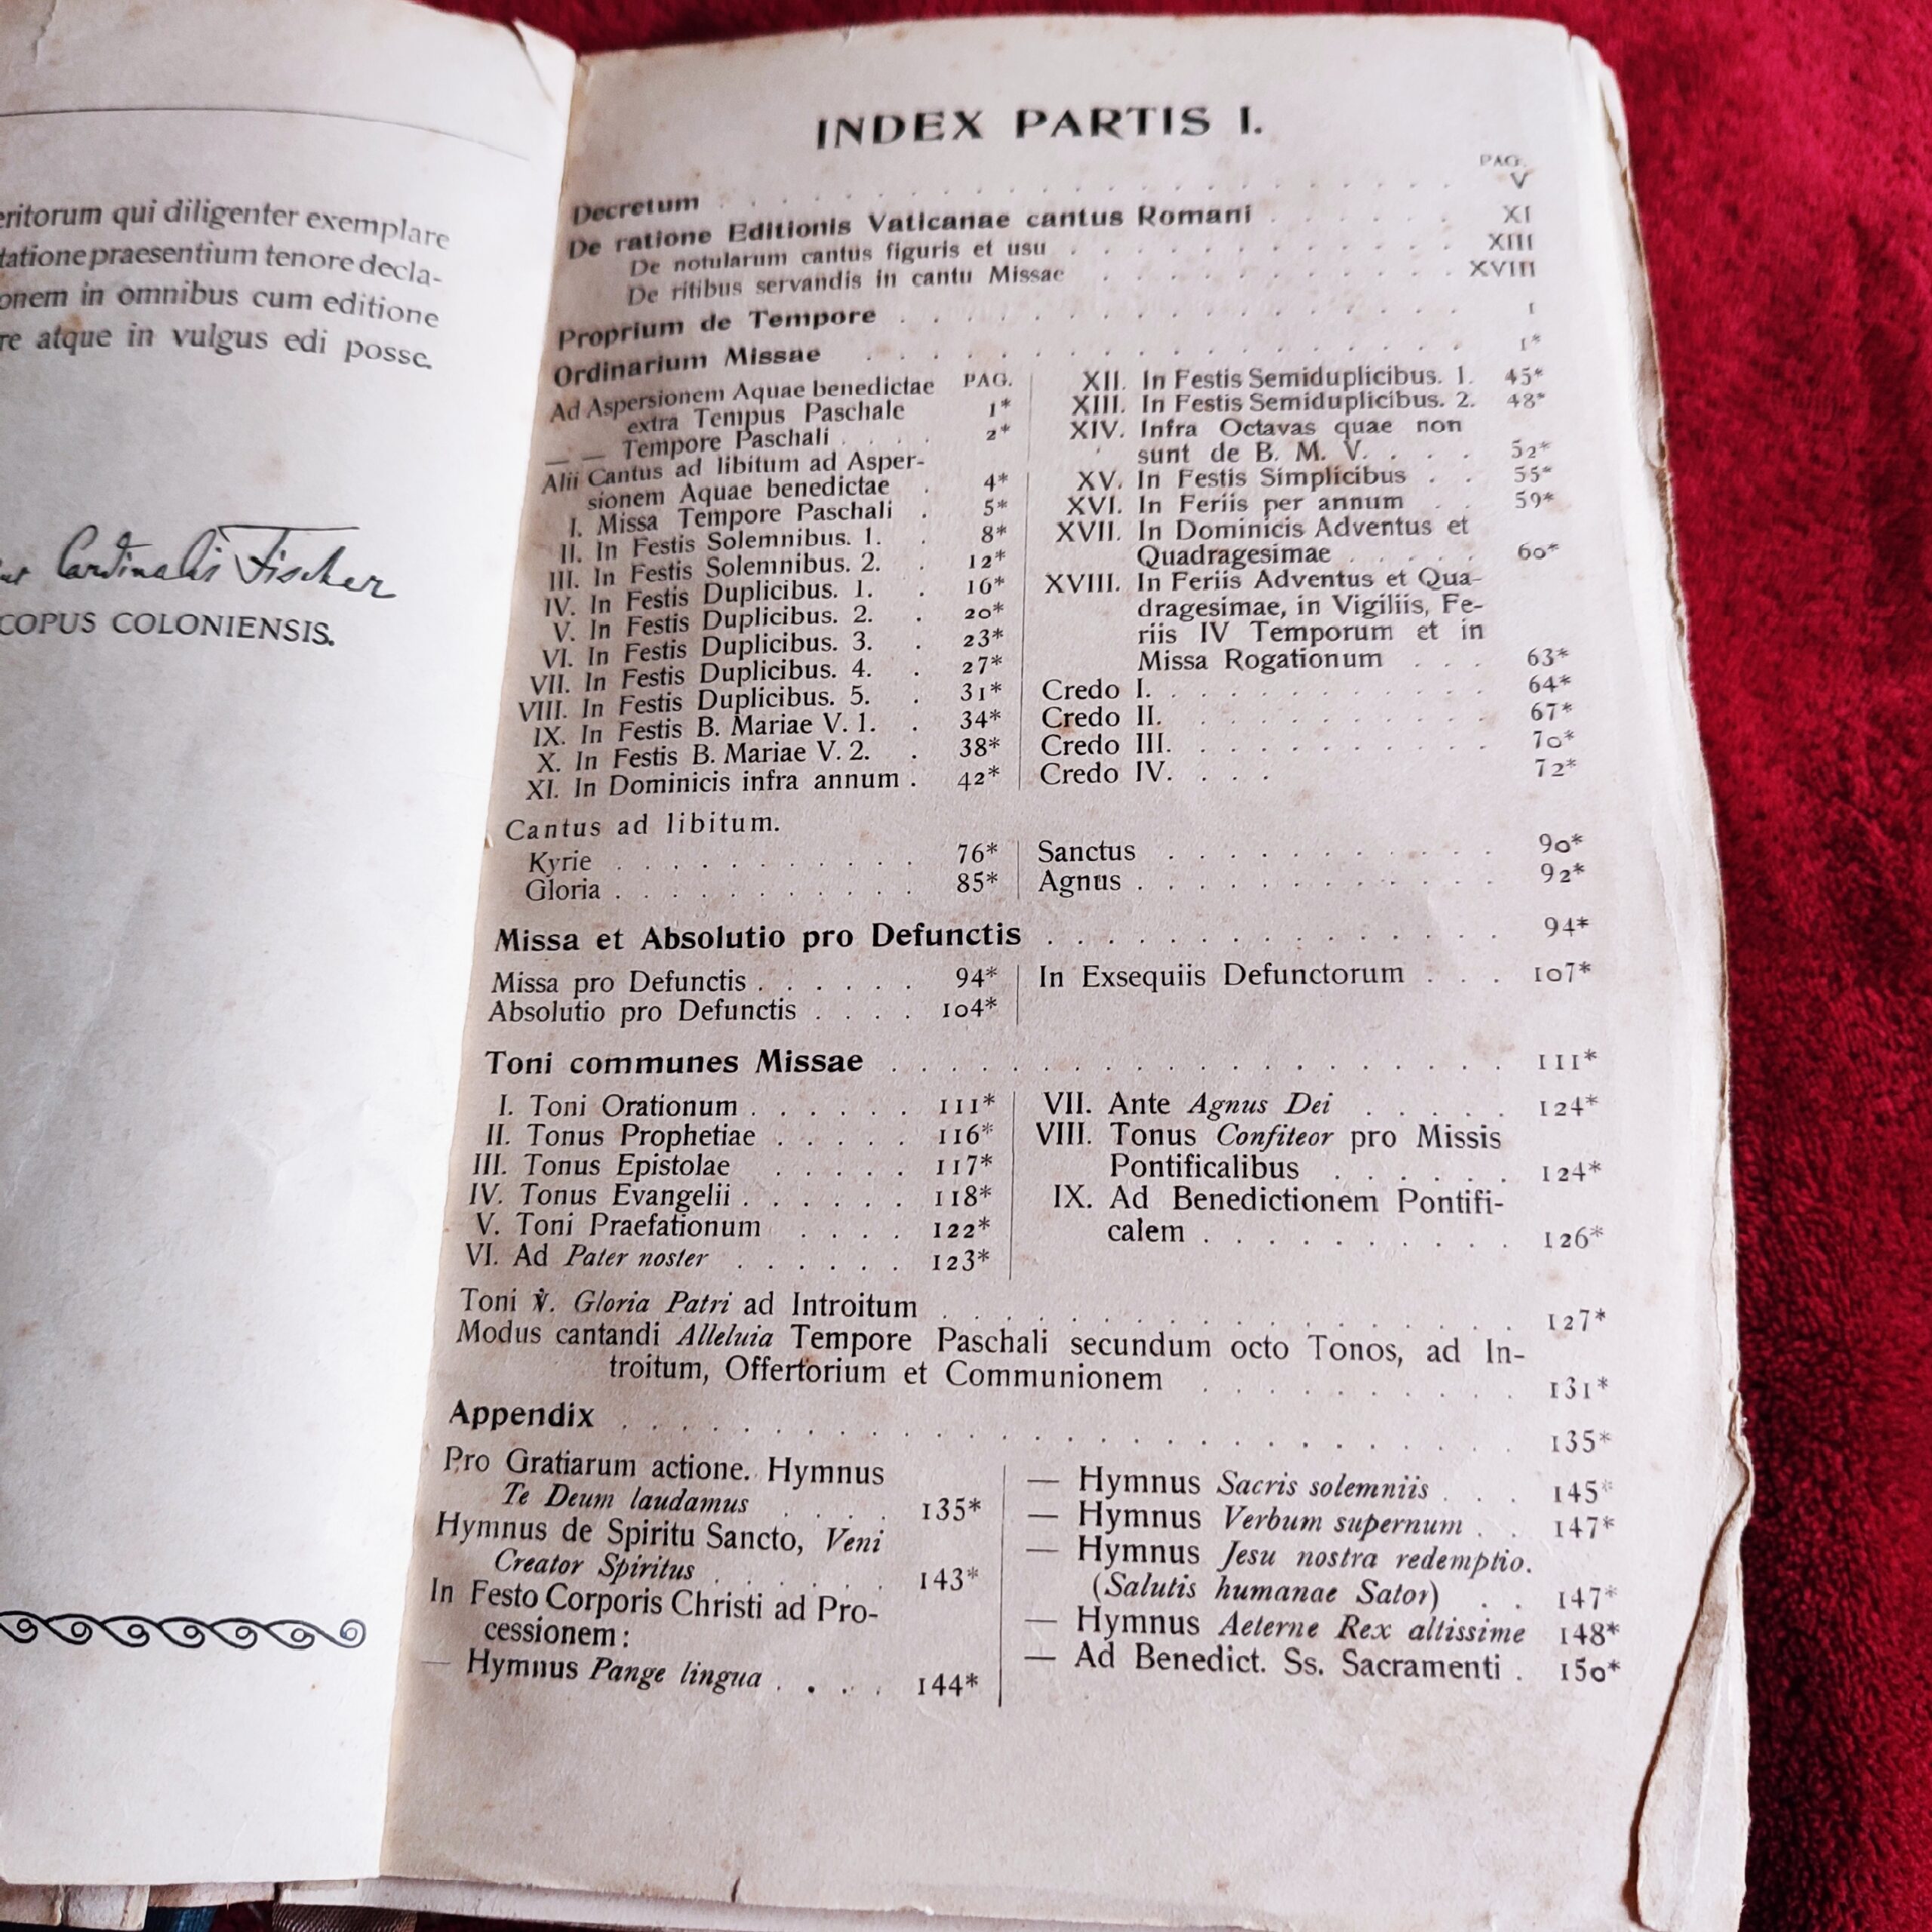 qui diligenter exemplare
praesentium tenore decla-
in omnibus cum editione
atque in vulgus edi posse.
Cardinalis Fischer
COLONIENSIS.
INDEX PARTIS I.
PAG.
Decretum V
De ratione Editionis Vaticanae cantus Romani XI
De notularum cantus figuris et usu XIII
De ritibus servandis in cantu Missae XVIII
Proprium de Tempore 1
Ordinarium Missae 1*
PAG.
Ad Aspersionem Aquae benedictae
extra Tempus Paschale 1*
— — Tempore Paschali 2*
Alii Cantus ad libitum ad Asper-
sionem Aquae benedictae 4*
I. Missa Tempore Paschali 5*
II. In Festis Solemnibus. 1. 8*
III. In Festis Solemnibus. 2. 12*
IV. In Festis Duplicibus. 1. 16*
V. In Festis Duplicibus. 2. 20*
VI. In Festis Duplicibus. 3. 23*
VII. In Festis Duplicibus. 4. 27*
VIII. In Festis Duplicibus. 5. 31*
IX. In Festis B. Mariae V. 1. 34*
X. In Festis B. Mariae V. 2. 38*
XI. In Dominicis infra annum 42*
XII. In Festis Semiduplicibus. 1. 45*
XIII. In Festis Semiduplicibus. 2. 48*
XIV. Infra Octavas quae non
sunt de B. M. V. 52*
XV. In Festis Simplicibus 55*
XVI. In Feriis per annum 59*
XVII. In Dominicis Adventus et
Quadragesimae 60*
XVIII. In Feriis Adventus et Qua-
dragesimae, in Vigiliis, Fe-
riis IV Temporum et in
Missa Rogationum 63*
Credo I. 64*
Credo II. 67*
Credo III. 70*
Credo IV. 72*
Cantus ad libitum.
Kyrie 76*
Gloria 85*
Sanctus 90*
Agnus 92*
Missa et Absolutio pro Defunctis 94*
Missa pro Defunctis 94*
Absolutio pro Defunctis 104*
In Exsequiis Defunctorum 107*
Toni communes Missae 111*
I. Toni Orationum 111*
II. Tonus Prophetiae 116*
III. Tonus Epistolae 117*
IV. Tonus Evangelii 118*
V. Toni Praefationum 122*
VI. Ad Pater noster 123*
VII. Ante Agnus Dei 124*
VIII. Tonus Confiteor pro Missis
Pontificalibus 124*
IX. Ad Benedictionem Pontifi-
calem 126*
Toni ℣. Gloria Patri ad Introitum 127*
Modus cantandi Alleluia Tempore Paschali secundum octo Tonos, ad In-
troitum, Offertorium et Communionem 131*
Appendix 135*
Pro Gratiarum actione. Hymnus
Te Deum laudamus 135*
Hymnus de Spiritu Sancto, Veni
Creator Spiritus 143*
In Festo Corporis Christi ad Pro-
cessionem:
— Hymnus Pange lingua 144*
— Hymnus Sacris solemniis 145*
— Hymnus Verbum supernum 147*
— Hymnus Jesu nostra redemptio.
(Salutis humanae Sator) 147*
— Hymnus Aeterne Rex altissime 148*
— Ad Benedict. Ss. Sacramenti 150*